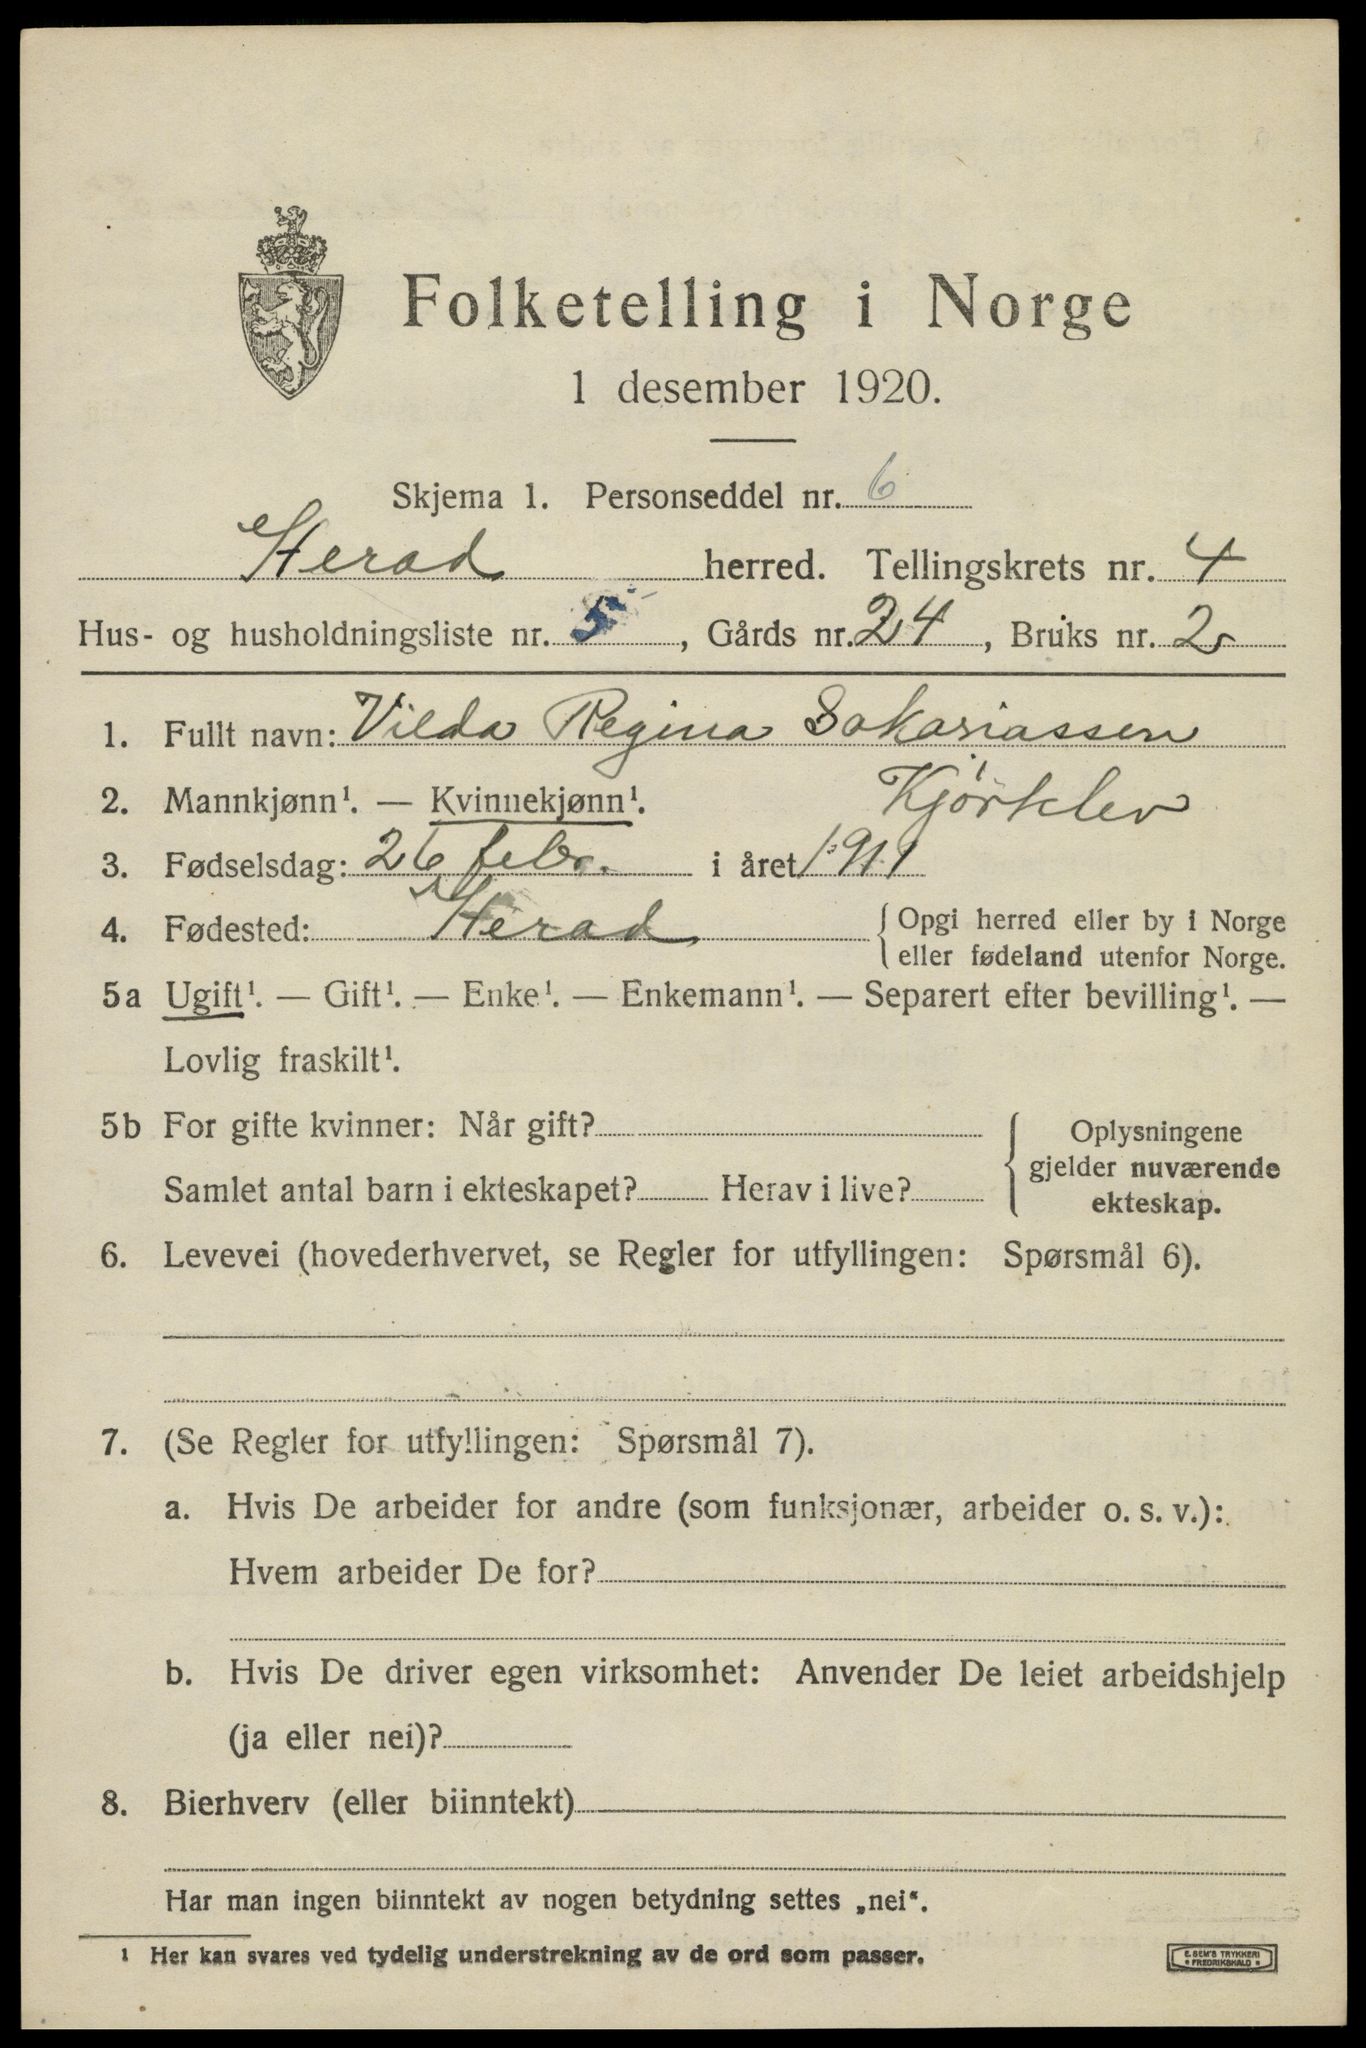 Folketelling i Norge
1 desember 1920.
Skjema 1. Personseddel nr. 6
Herad herred. Tellingskrets nr. 4
Hus- og husholdningsliste nr. 5, Gårds nr. 24, Bruks nr. 2
1. Fullt navn: Vilda Regina Sakariassen
2. Mannkjønn¹. — Kvinnekjønn¹. Kjörklev
3. Fødselsdag: 26 febr. i året 1911
4. Fødested: Herad { Opgi herred eller by i Norge
eller fødeland utenfor Norge.
5a Ugift¹. — Gift¹. — Enke¹. — Enkemann¹. — Separert efter bevilling¹. —
Lovlig fraskilt¹.
5b For gifte kvinner: Når gift? { Oplysningene
gjelder nuværende
Samlet antal barn i ekteskapet? Herav i live? ekteskap.
6. Levevei (hovederhvervet, se Regler for utfyllingen: Spørsmål 6).
7. (Se Regler for utfyllingen: Spørsmål 7).
a. Hvis De arbeider for andre (som funksjonær, arbeider o. s. v.):
Hvem arbeider De for?
b. Hvis De driver egen virksomhet: Anvender De leiet arbeidshjelp
(ja eller nei)?
8. Bierhverv (eller biinntekt)
Har man ingen biinntekt av nogen betydning settes „nei“.
¹ Her kan svares ved tydelig understrekning av de ord som passer.
E. SEM'S TRYKKERI
* FREDRIKSHALD *